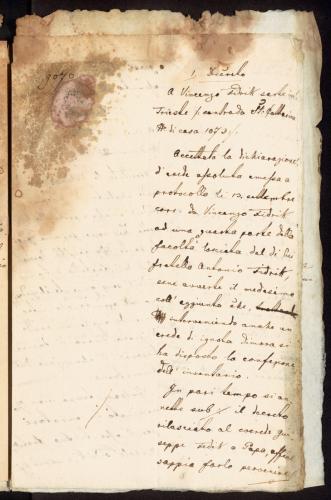 9070
1, Decreto
A Vincenzo Fidrik sarte in
Trieste /: contrada St. Catterina
N di casa 1073 :/.
Accettata la dichiarazione
d'erede assoluta emessa a
protocollo li 13. settembre
corr. da Vincenzo Fidrik
ad una quarta parte della
facoltà lasciata dal di lui
fratello Antonio Fidrik,
viene avvertito il medesimo
coll' aggiunta che,
interveniendo anche un
erede di ignota dimora si
ha disposto la confezione
dell' inventario.
In pari tempo si an-
nette sub ⁒ il decreto
rilasciato al coerede Giu-
seppe Fidrik o Papa, affine
sappia farlo pervenire